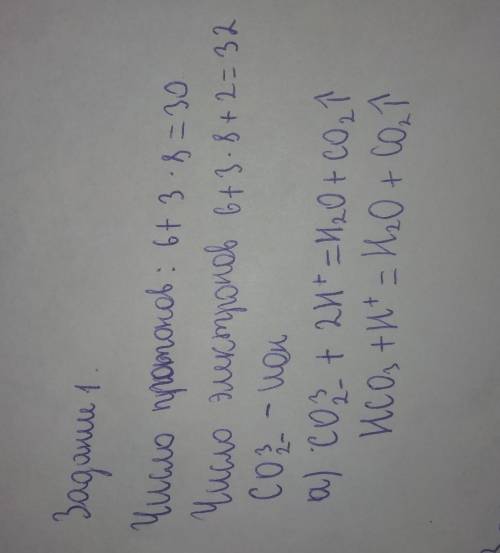 Задание 1.
Число протонов: 6+3·8=30
Число электронов 6+3·8+2=32
CO₂₋³ – ион
а) CO₂₋³ + 2H⁺ = H₂O + CO₂↑
HCO₃ + H⁺ = H₂O + CO₂↑